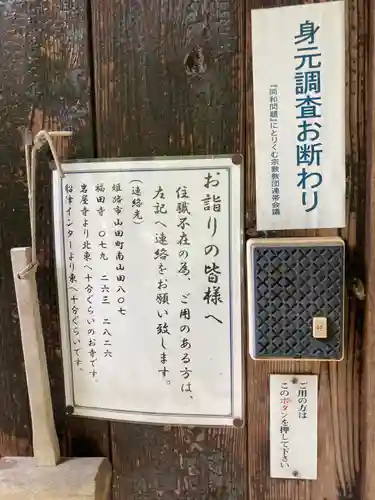 身元調査お断わり
『同和問題』にとりくむ宗教教団連帯会議
お詣りの皆様へ
住職不在の為、ご用のある方は、
左記へ連絡をお願い致します。
(連絡光)
姫路市山田町南山田八〇七
福田寺 〇七九 二六三 二八二六
岩屋寺より北東へ十分ぐらいのお寺です。
船津インターより東へ十分ぐらいです。
ご用の方は
このボタンを押して下さい